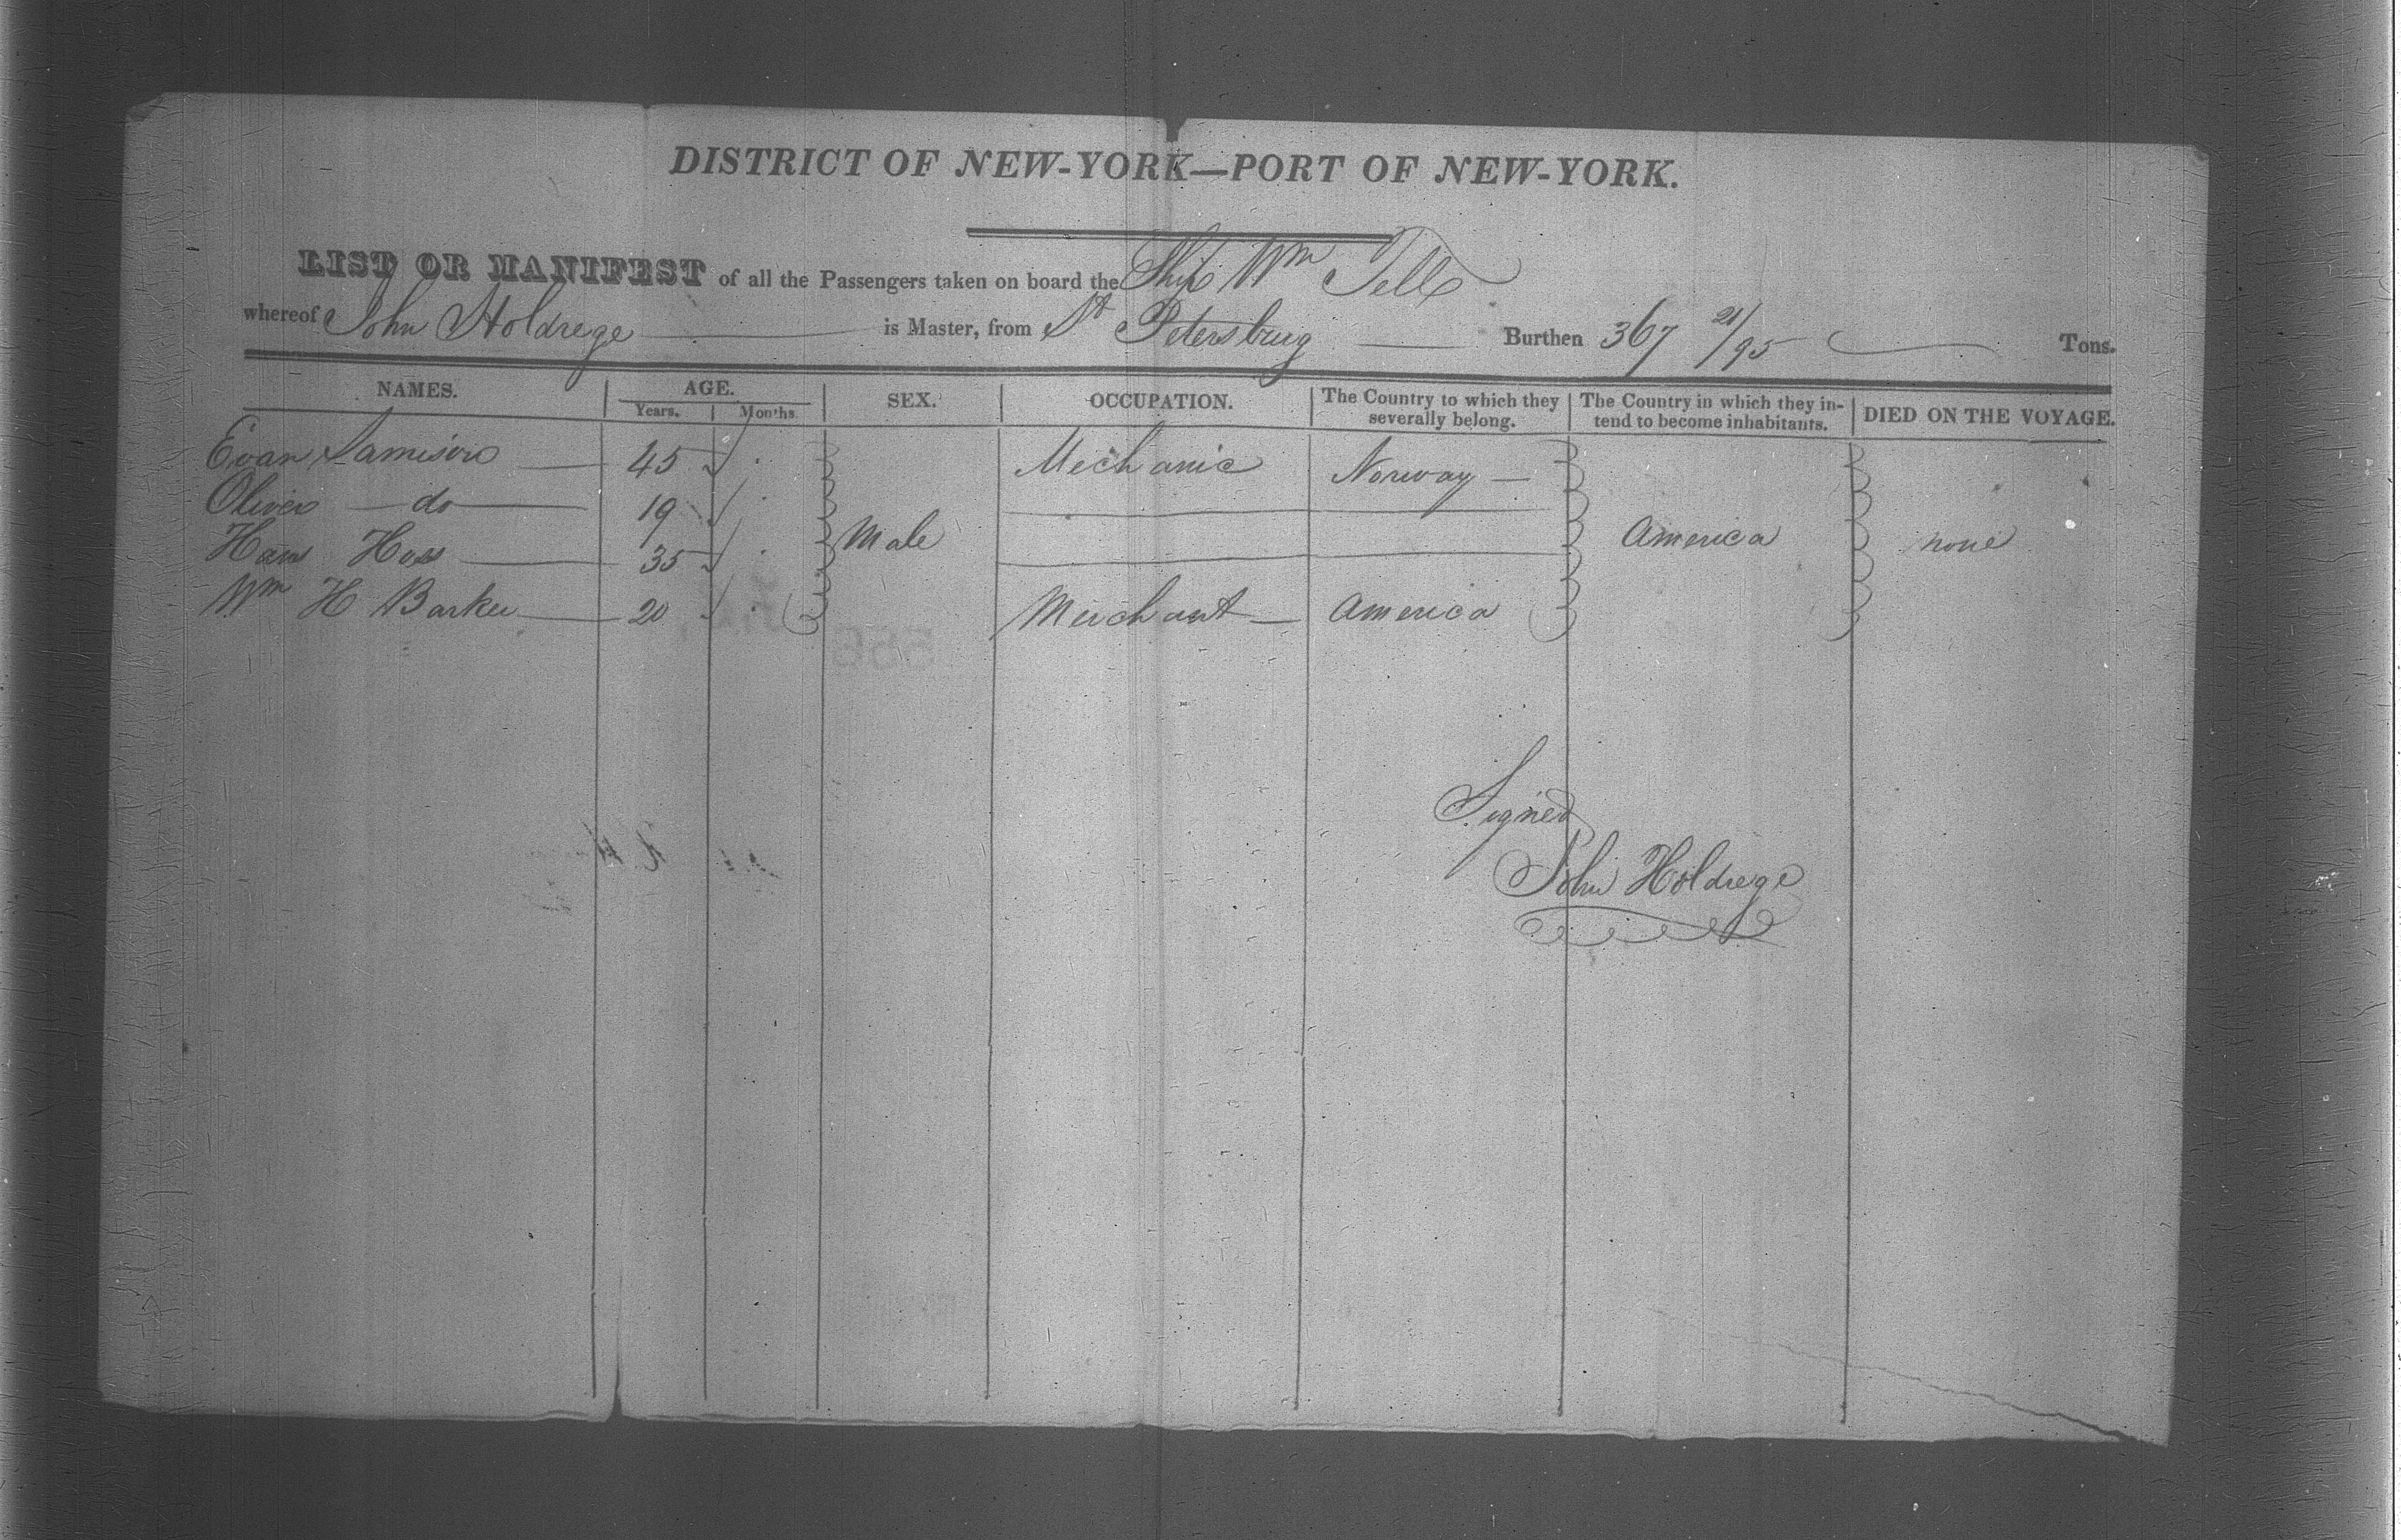 DISTRICT OF NEW-YORK—PORT OF NEW-YORK.
LIST OR MANIFEST of all the Passengers taken on board the Ship Wm Tell
whereof John Holdrege is Master, from St Petersburg Burthen 367 21/95 Tons.
NAMES. AGE. SEX. OCCUPATION. The Country to which they severally belong. The Country in which they intend to become inhabitants. DIED ON THE VOYAGE.
Years. Months
Evan 45 Mechanic Norway
Oliver do 19
Hans Hoss 35 Male America none
Wm H Barker 20 Merchant America
Signed
John Holdrege